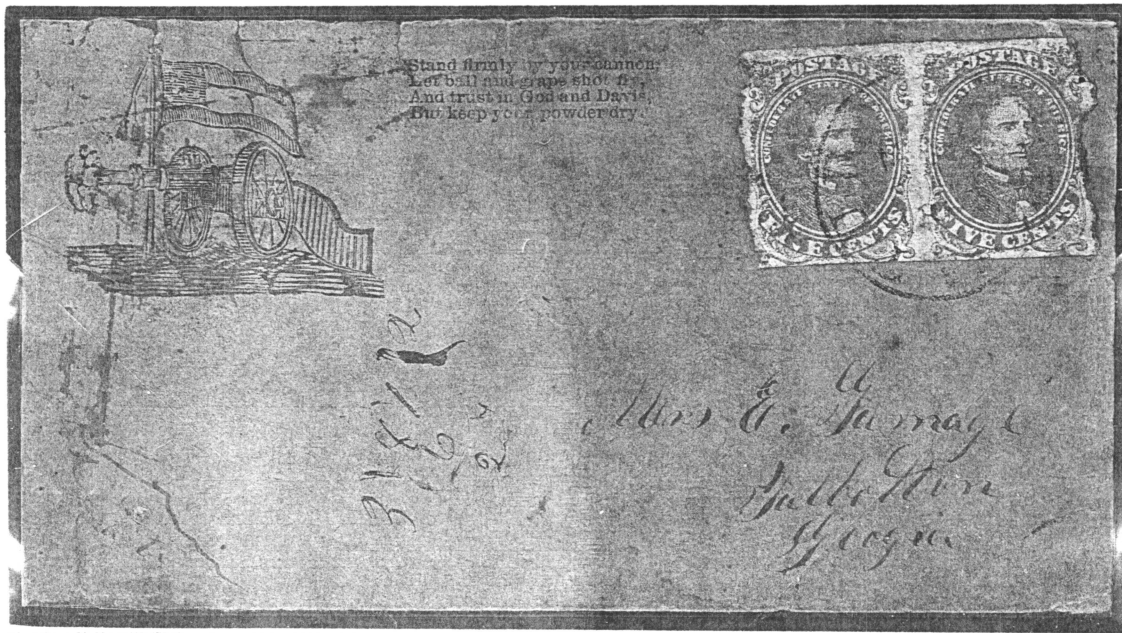 Stand firmly by your cannon,
Let ball and grape shot fly,
And trust in God and Davis,
But keep your powder dry.
POSTAGE
CONFEDERATE STATES OF AMERICA
FIVE CENTS
POSTAGE
CONFEDERATE STATES OF AMERICA
FIVE CENTS
Mrs E. Gamage
Talbotton
Geogia